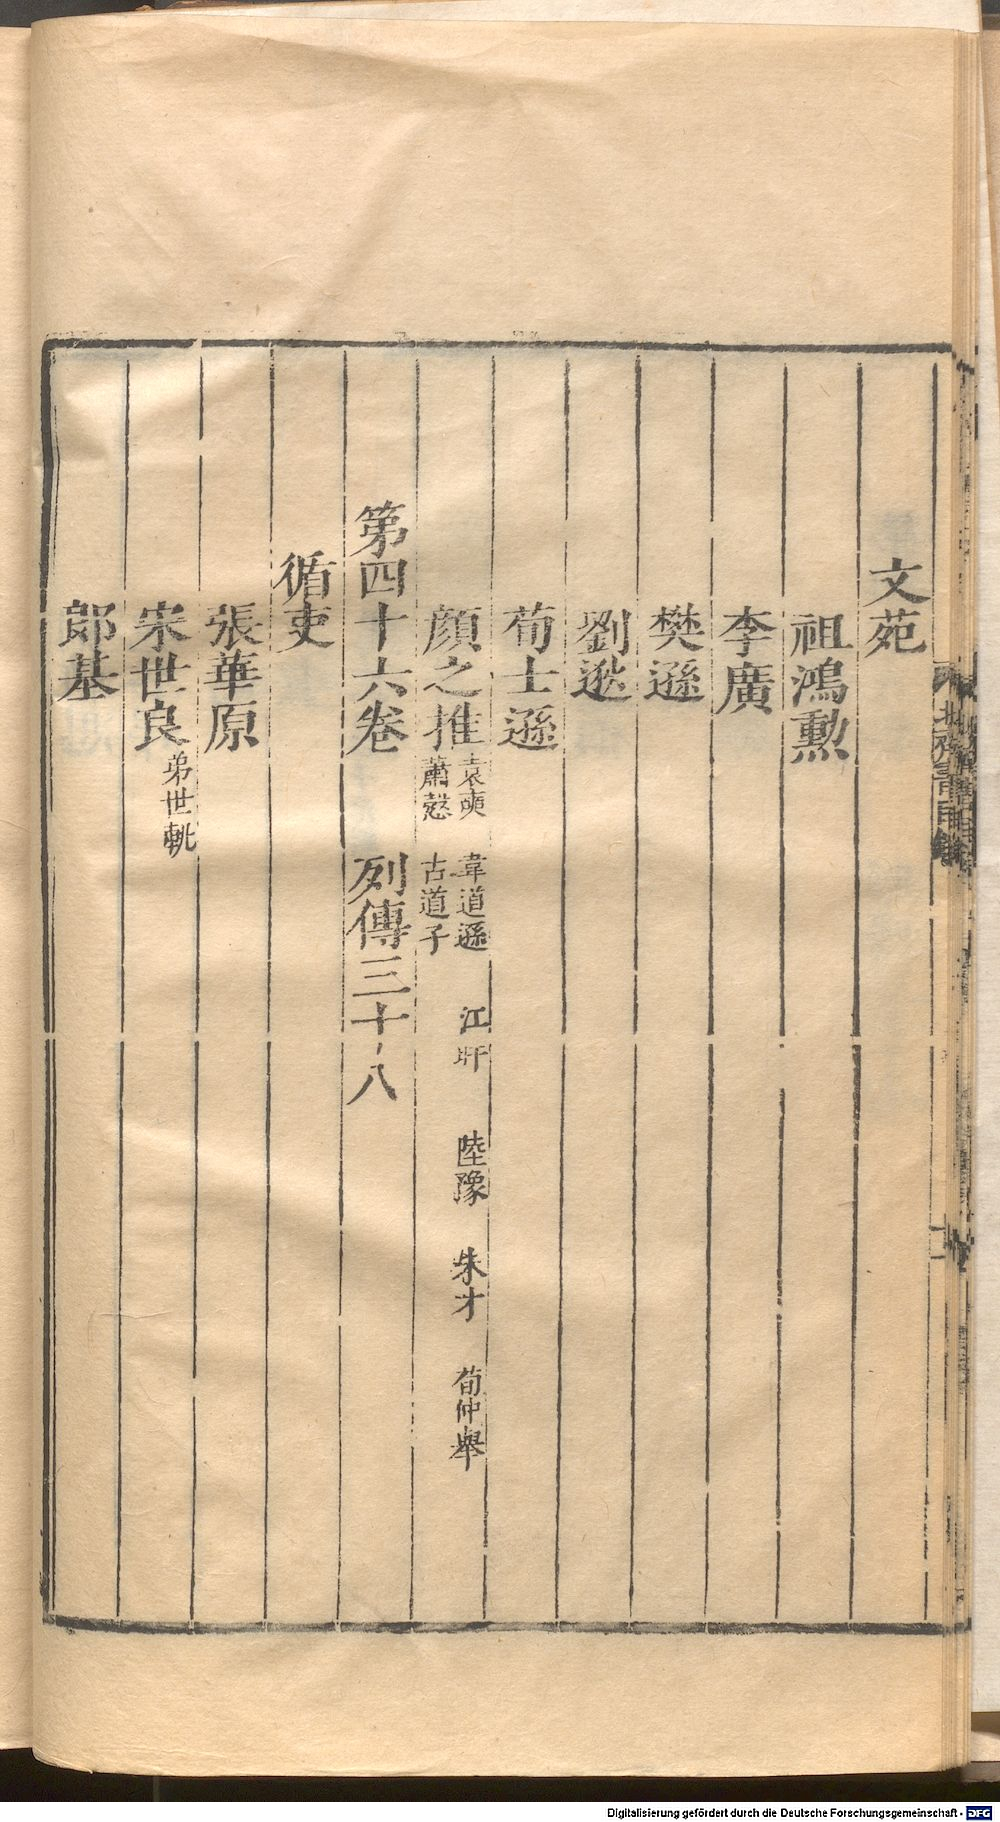 文苑
祖鴻勲
李廣
樊遜
劉逖
荀士遜
顔之推 袁奭 韋道遜 江旰 陸豫 朱才 荀仲舉
蕭慤 古道子
第四十六卷 列傳三十八
循吏
張華原
宋世良 弟世軌
郎基
北齊書目錄
Digitalisierung gefördert durch die Deutsche Forschungsgemeinschaft - DFG